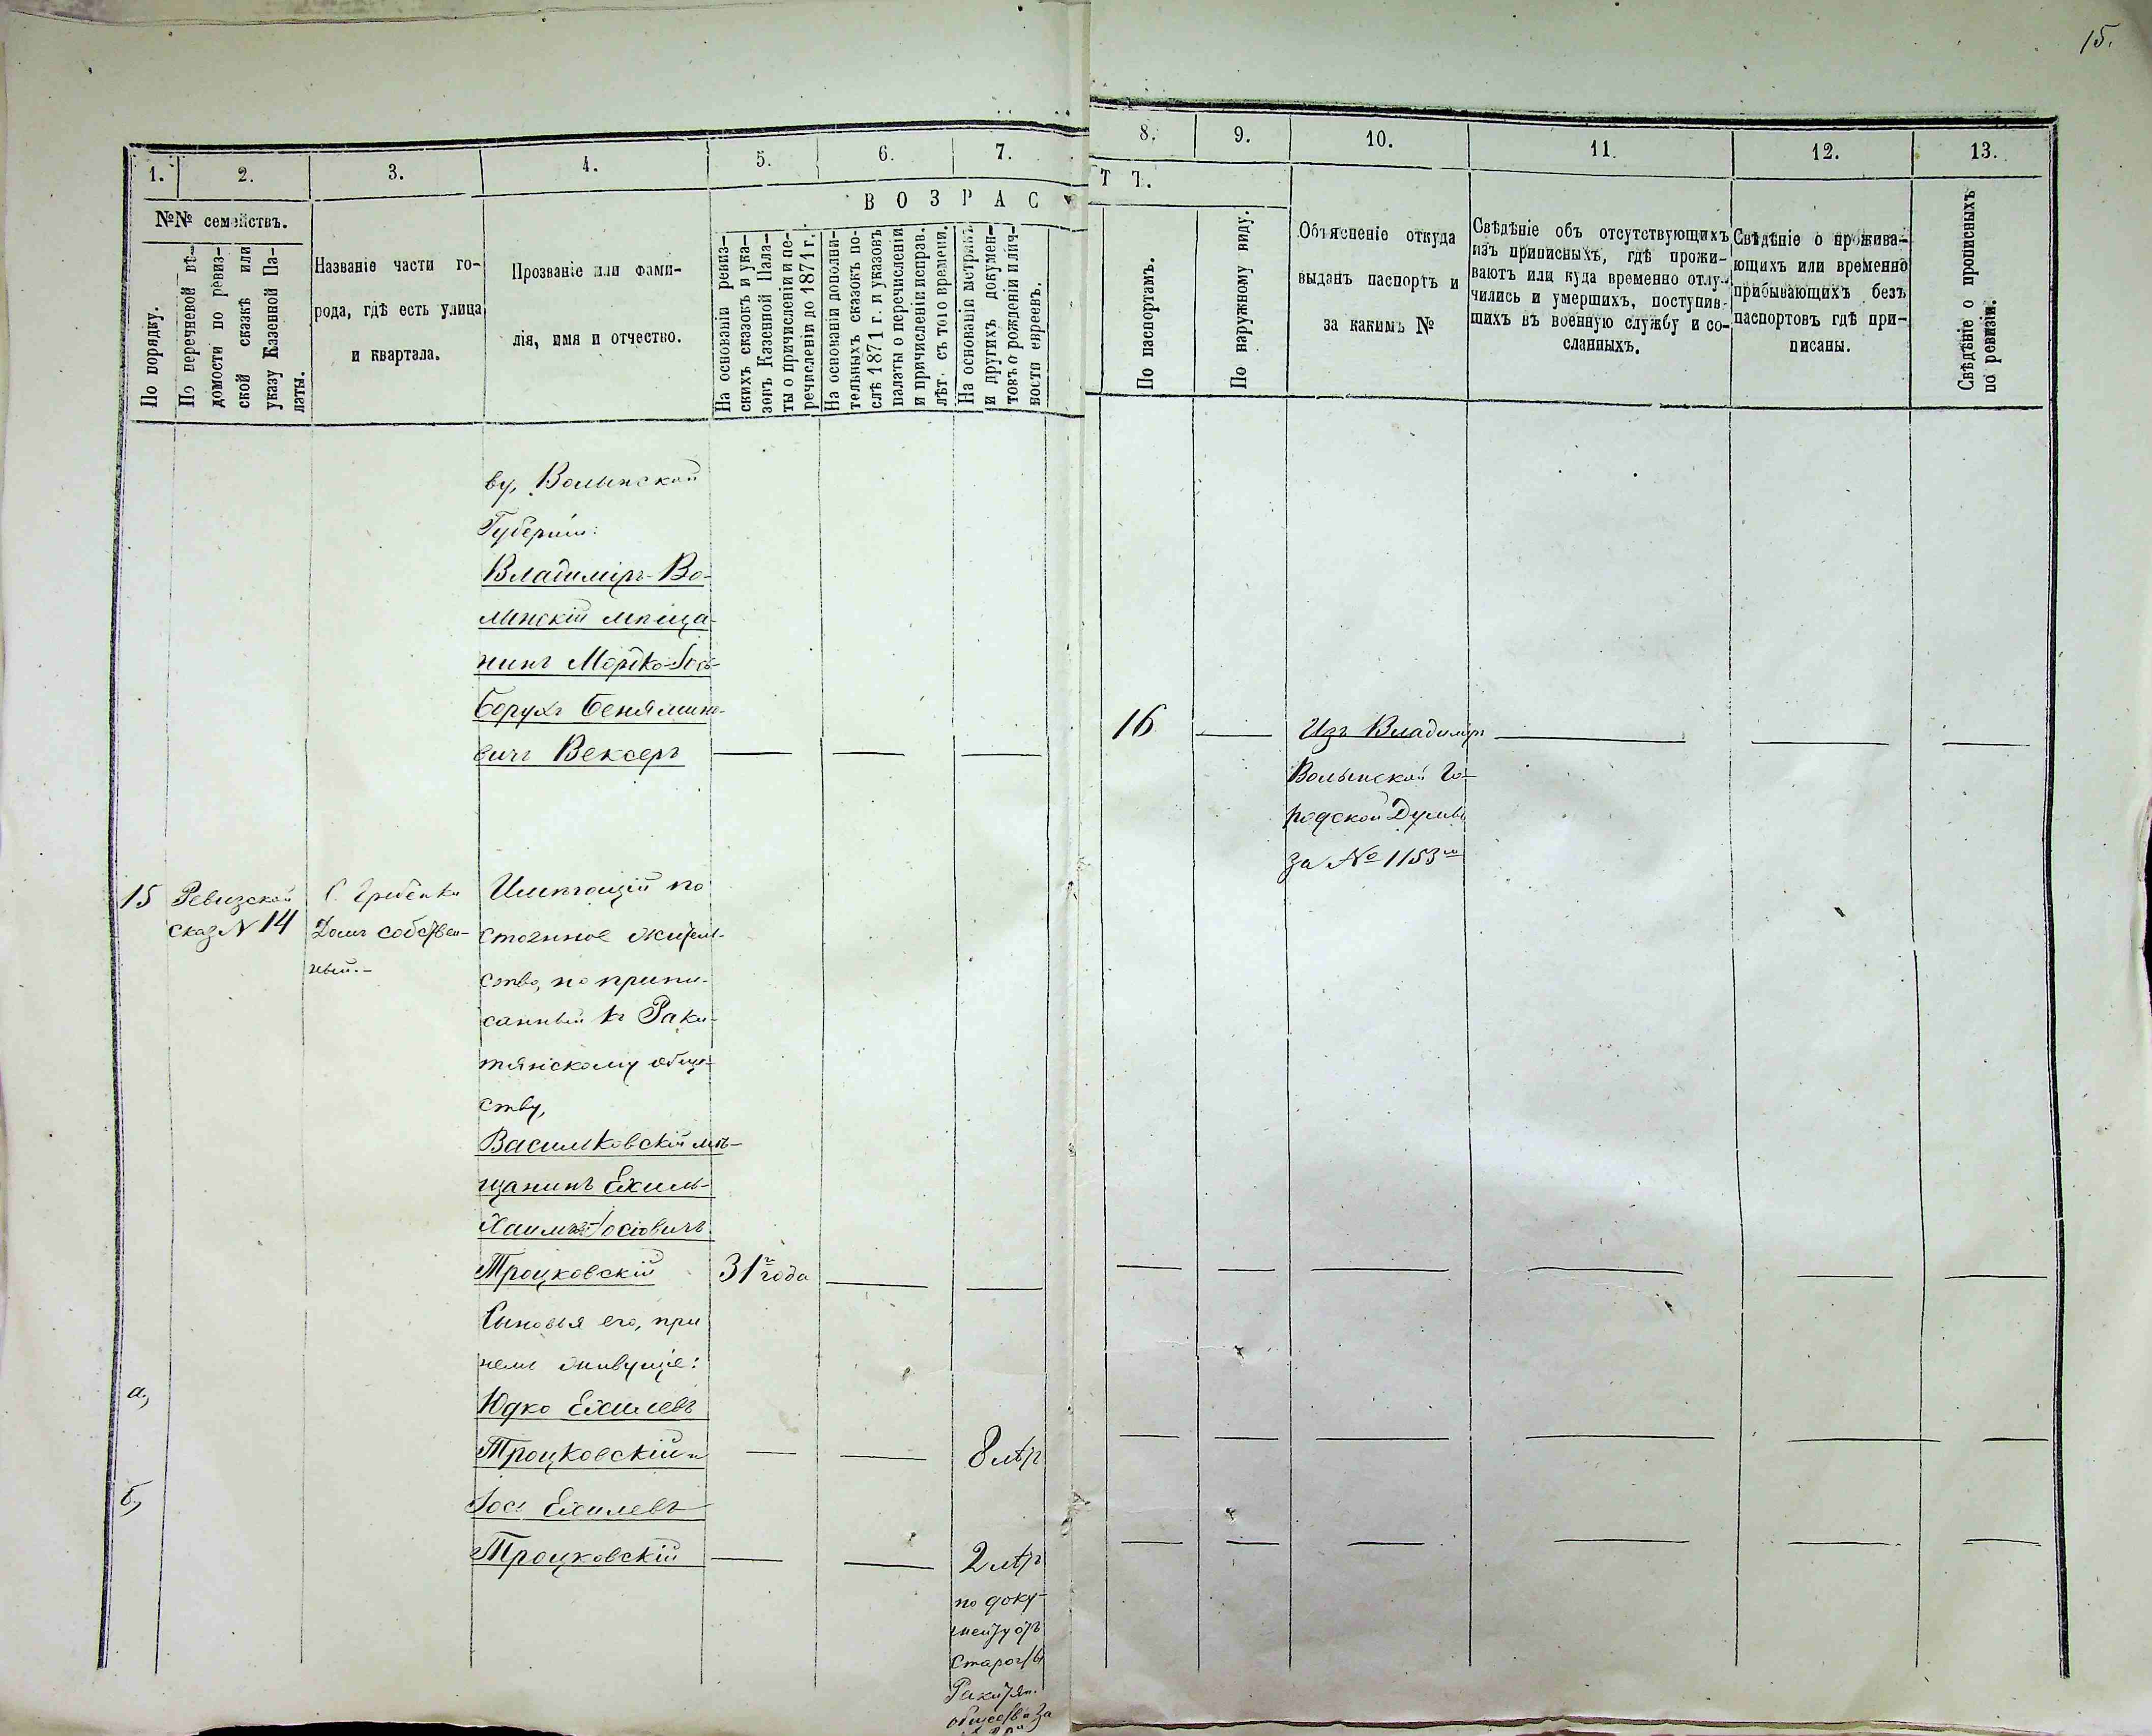 15.
1.
2.
3.
4.
5.
6.
7.
8.
9.
10.
11.
12.
13.
ВОЗРАС
ТЪ.
№№ семействъ.
По порядку.
По перечневой вѣ-
домости по ревиз-
ской сказкѣ или
указу Казенной Па-
латы.
Названіе части го-
рода, гдѣ есть улица
и квартала.
Прозваніе или фами-
лія, имя и отчество.
На основаніи ревиз-
скихъ сказокъ и ука-
зовъ Казенной Пала-
ты о причисленіи и пе-
речисленіи до 1871 г.
На основаніи дополни-
тельныхъ сказокъ по-
слѣ 1871 г. и указовъ
палаты о перечисленіи
и причисленіи исправ.
лѣт. съ того времени.
На основаніи метрикъ
и другихъ докумен-
товъ о рожденіи и лич-
ности евреевъ.
По паспортамъ.
По наружному виду.
Объясненіе откуда
выданъ паспортъ и
за какимъ №
Свѣдѣніе объ отсутствующихъ
изъ приписныхъ, гдѣ прожи-
ваютъ или куда временно отлу-
чились и умершихъ, поступив-
шихъ въ военную службу и со-
сланныхъ.
Свѣдѣніе о прожива-
ющихъ или временно
прибывающихъ безъ
паспортовъ гдѣ при-
писаны.
Свѣдѣніе о прописныхъ
по ревизіи.
ву, Волынской
Губерніи:
Владиміръ-Во-
лынскій мѣща-
нинъ Мордко-Іось-
Борухъ Бенямино-
вичъ Вексеръ
16
Изъ Владиміръ
Волынской Го-
родской Думы
за № 1153
15
Ревизской
сказ № 14
С. Гребенки
Домъ собствен-
ный.-
Имѣющій по
стоянное житель-
ство, но припи-
санный къ Раки-
тянскому обще-
ству,
Васильковскій мѣ-
щанинъ Ехиль-
Хаимъ Іосіовичъ
Троцковскій
31 года
Сыновья его, при
немъ живущіе:
а,
Юдко Ехилевъ
Троцковскій и
8 лѣтъ
б,
Іось Ехилевъ
Троцковскій
2 лѣтъ
по доку-
менту отъ
Старосты
Ракитян.
общества за